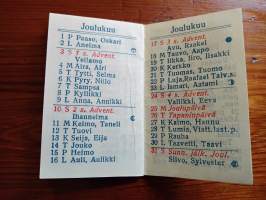 Joulukuu
1 P Paaso, Oskari
2 L Anelma
3 S 1 s. Advent.
Vellamo
4 M Aira, Airi
5 T Tytti, Selma
6 K Pyry, Niilo
7 T Sampsa
8 P Kyllikki
9 L Anna, Annikki
10 S 2 s. Advent.
Ihannelma
11 M Kaimo, Taneli
12 T Tuovi
13 K Seija, Eija
14 T Jouko
15 P Heimo
16 L Auli, Aulikki
Joulukuu
17 S 3 s. Advent.
Avo, Raakel
18 M Tauvo, Aapo
19 T Iikka, Iiro, Iisakki
20 K Kerkko
21 T Tuomas, Tuomo
22 P
23 L Ismari, Aatami
24 S 4 s. Advent.
Valikki, Eeva
25 M Joulupäivä
26 T Tapaninpäivä
27 K Hannu, Hannes
28 T
29 P Rauha
30 L Taavetti, Daavid
31 S Sunn. jälk. Joul.
Silvo, Sylvester